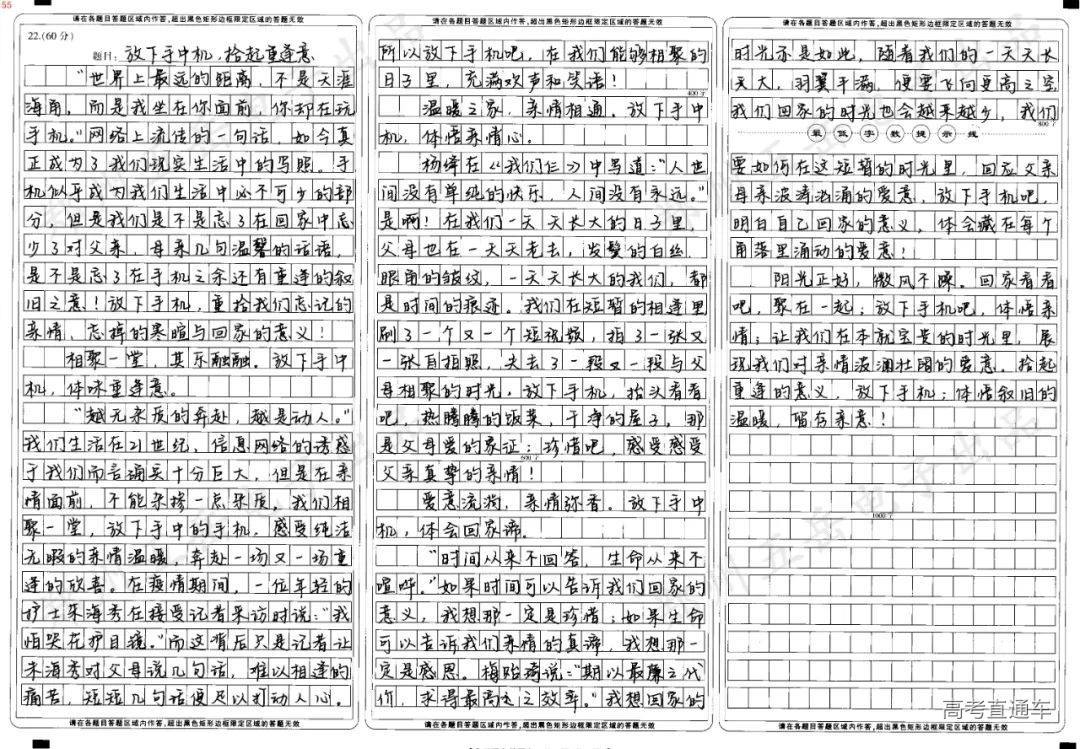 55
请在各题目答题区域内作答,超出黑色矩形边框限定区域的答题无效
22.(60分)
题目:放下手中机,拾起重逢意
“世界上最远的距离,不是天涯
海角,而是我坐在你面前,你却在玩
手机。”网络上流传的一句话,如今真
正成为了我们现实生活中的写照。手
机似乎成为我们生活中必不可少的部
分,但是我们是不是忘了在回家中忘
少了对父亲、母亲几句温馨的话语,
是不是忘了在手机之余还有重逢的叙
旧之意!放下手机,重拾我们忘记的
亲情、忘掉的寒暄与回家的意义!
相聚一堂,其乐融融。放下手中
机,体味重逢意。
“越无杂质的奔赴,越是动人。”
我们生活在21世纪,信息网络的诱惑
于我们而言确实十分巨大,但是在亲
情面前,不能杂掺一点杂质。我们相
聚一堂,放下手中的手机,感受纯洁
无暇的亲情温暖,奔赴一场又一场重
逢的欣喜。在疫情期间,一位年轻的
护士朱海秀在接受记者采访时说:“我
怕哭花护目镜。”而这背后只是记者让
朱海秀对父母说几句话,难以相逢的
痛苦,短短几句话便足以打动人心。
请在各题目答题区域内作答,超出黑色矩形边框限定区域的答题无效
请在各题目答题区域内作答,超出黑色矩形边框限定区域的答题无效
所以放下手机吧,在我们能够相聚的
日子里,充满欢声和笑语!
400字
温暖之家,亲情相通。放下手中
机,体悟亲情心。
杨绛在《我们仨》中写道:“人世
间没有单纯的快乐,人间没有永远。”
是啊!在我们一天天长大的日子里,
父母也在一天天老去,发鬓的白丝、
眼角的皱纹,一天天长大的我们,都
是时间的痕迹。我们在短暂的相逢里
刷了一个又一个短视频,拍了一张又
一张自拍照,失去了一段又一段与父
母相聚的时光,放下手机,抬头看看
吧,热腾腾的饭菜,干净的屋子,那
是父母爱的象征;珍惜吧,感受感受
600字
父亲真挚的亲情!
爱意流淌,亲情弥香。放下手中
机,体会回家谛。
“时间从来不回答,生命从来不
喧哗。”如果时间可以告诉我们回家的
意义,我想那一定是珍惜;如果生命
可以告诉我们亲情的真谛,我想那一
定是感恩。梅贻琦说:“期以最廉之代
价,求得最高之之效率。”我想回家的
请在各题目答题区域内作答,超出黑色矩形边框限定区域的答题无效
请在各题目答题区域内作答,超出黑色矩形边框限定区域的答题无效
时光亦是如此,随着我们的一天天长
天大,羽翼丰满,便要飞向更高之空
我们回家的时光也会越来越少,我们
800字
最低字数提示线
要如何在这短暂的时光里,回应父亲
母亲波涛汹涌的爱意,放下手机吧,
明白自己回家的意义,体会藏在每个
角落里涌动的爱意!
阳光正好,微风不噪。回家看看
吧,聚在一起;放下手机吧,体悟亲
情;让我们在本就宝贵的时光里,展
现我们对亲情波澜壮阔的爱意。拾起
重逢的意义,放下手机;体悟叙旧的
温暖,留存亲意!
1000字
请在各题目答题区域内作答,超出黑色矩形边框限定区域的答题无效
高考直通车